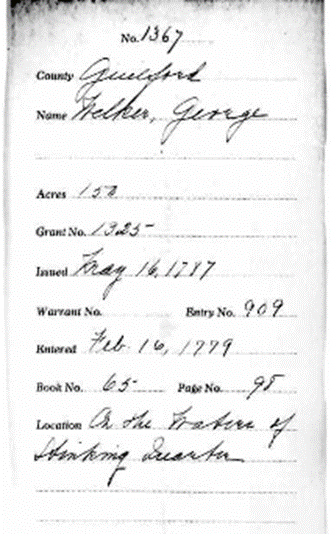 No. 1367
County Guilford
Name Welker, George
Acres 150
Grant No. 1325
Issued May 16, 1787
Warrant No. Entry No. 909
Entered Feb. 16, 1779
Book No. 65 Page No. 98
Location On the Waters of
Stinking Quarter